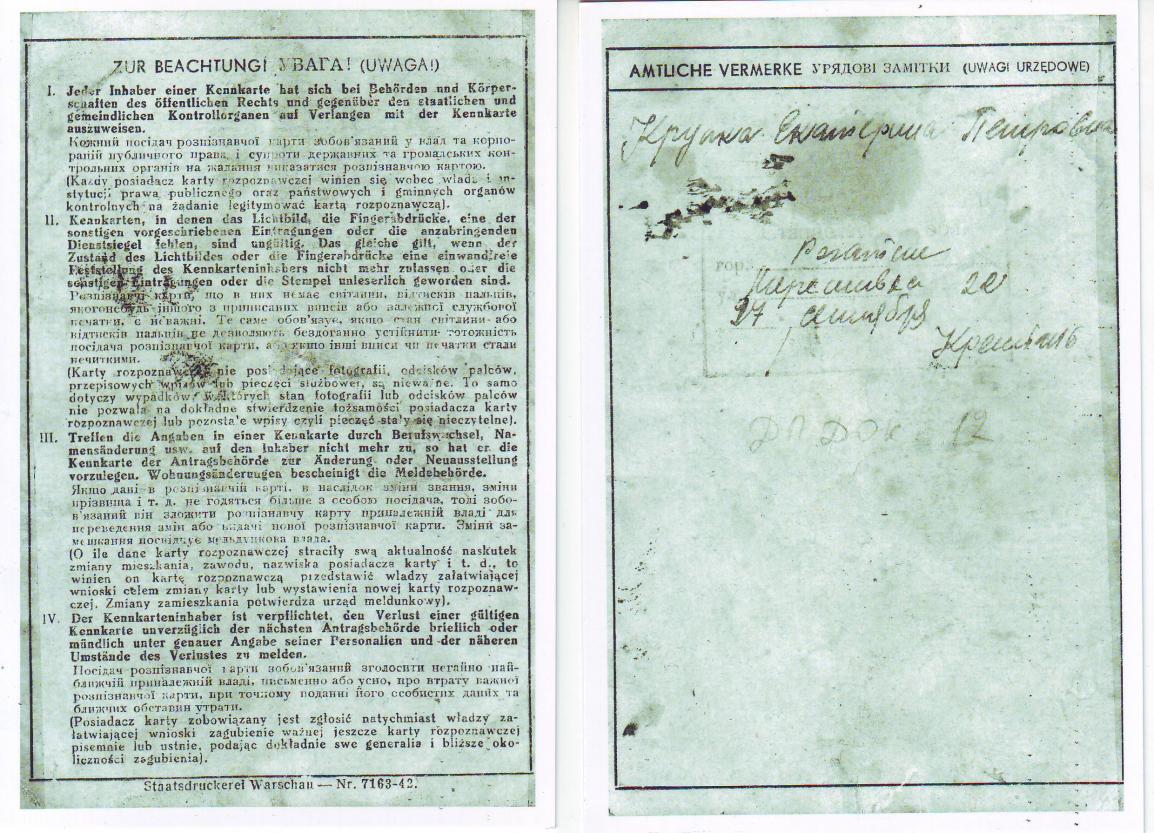 ZUR BEACHTUNG! УВАГА! (UWAGA!)
I. Jeder Inhaber einer Kennkarte hat sich bei Behörden und Körper-
schaften des öffentlichen Rechts und gegenüber den staatlichen und
gemeindlichen Kontrollorganen auf Verlangen mit der Kennkarte
auszuweisen.
Кожний посідач розпізнавчої карти зобов'язаний у влад та корпо-
рацій публичного права, і супроти державних та громадських кон-
трольних органів на жадання виказатися розпізнавчою картою.
(Każdy posiadacz karty rozpoznawczej winien się wobec władz i in-
stytucji prawa publicznego oraz państwowych i gminnych organów
kontrolnych na żądanie legitymować kartą rozpoznawczą).
II. Kennkarten, in denen das Lichtbild, die Fingerabdrücke, eine der
sonstigen vorgeschriebenen Eintragungen oder die anzubringenden
Dienstsiegel fehlen, sind ungültig. Das gleiche gilt, wenn der
Zustand des Lichtbildes oder die Fingerabdrücke eine einwandfreie
Feststellung des Kennkarteninhabers nicht mehr zulassen oder die
sonstigen Eintragungen oder die Stempel unleserlich geworden sind.
Розпізнавчі карти, що в них немає світлини, відтисків пальців,
якогонебудь іншого з приписаних вписів або належної службової
печатки, є неважні. Те саме обов'язує, якщо стан світлини або
відтисків пальців не дозволяють бездоганно устійнити тотожність
посідача розпізнавчої карти, або якщо інші вписи чи печатки стали
нечиткими.
(Karty rozpoznawcze nie posiadające fotografii, odcisków palców,
przepisowych wpisów lub pieczęci służbowej, są nieważne. To samo
dotyczy wypadków, w których stan fotografii lub odcisków palców
nie pozwala na dokładne stwierdzenie tożsamości posiadacza karty
rozpoznawczej lub pozostałe wpisy czyli pieczęć stały się nieczytelne).
III. Treffen die Angaben in einer Kennkarte durch Berufswechsel, Na-
mensänderung usw. auf den Inhaber nicht mehr zu, so hat er die
Kennkarte der Antragsbehörde zur Änderung oder Neuausstellung
vorzulegen. Wohnungsänderungen bescheinigt die Meldebehörde.
Якщо дані в розпізнавчій карті, в наслідок зміни звання, зміни
прізвища і т. д. не годяться більше з особою посідача, тоді зобо-
в'язаний він зложити розпізнавчу карту приналежній владі для
переведення змін або видачі нової розпізнавчої карти. Зміни за-
мешкання посвідчує мельдункова влада.
(O ile dane karty rozpoznawczej straciły swą aktualność naskutek
zmiany mieszkania, zawodu, nazwiska posiadacza karty i t. d., to
winien on kartę rozpoznawczą przedstawić władzy załatwiającej
wnioski celem zmiany karty lub wystawienia nowej karty rozpoznaw-
czej. Zmiany zamieszkania potwierdza urząd meldunkowy).
IV. Der Kennkarteninhaber ist verpflichtet, den Verlust einer gültigen
Kennkarte unverzüglich der nächsten Antragsbehörde brieflich oder
mündlich unter genauer Angabe seiner Personalien und der näheren
Umstände des Verlustes zu melden.
Посідач розпізнавчої карти зобов'язаний зголосити негайно най-
ближчій приналежній владі, письменно або усно, про втрату важної
розпізнавчої карти, при точному поданні його особистих даних та
ближчих обставин утрати.
(Posiadacz karty zobowiązany jest zgłosić natychmiast władzy za-
łatwiającej wnioski zagubienie ważnej jeszcze karty rozpoznawczej
pisemnie lub ustnie, podając dokładnie swe generalia i bliższe oko-
liczności zagubienia).
Staatsdruckerei Warschau — Nr. 7163-42.
AMTLICHE VERMERKE УРЯДОВІ ЗАМІТКИ (UWAGI URZĘDOWE)
Крупка Екатерина Петровна
гор.
22
27 сентября
12